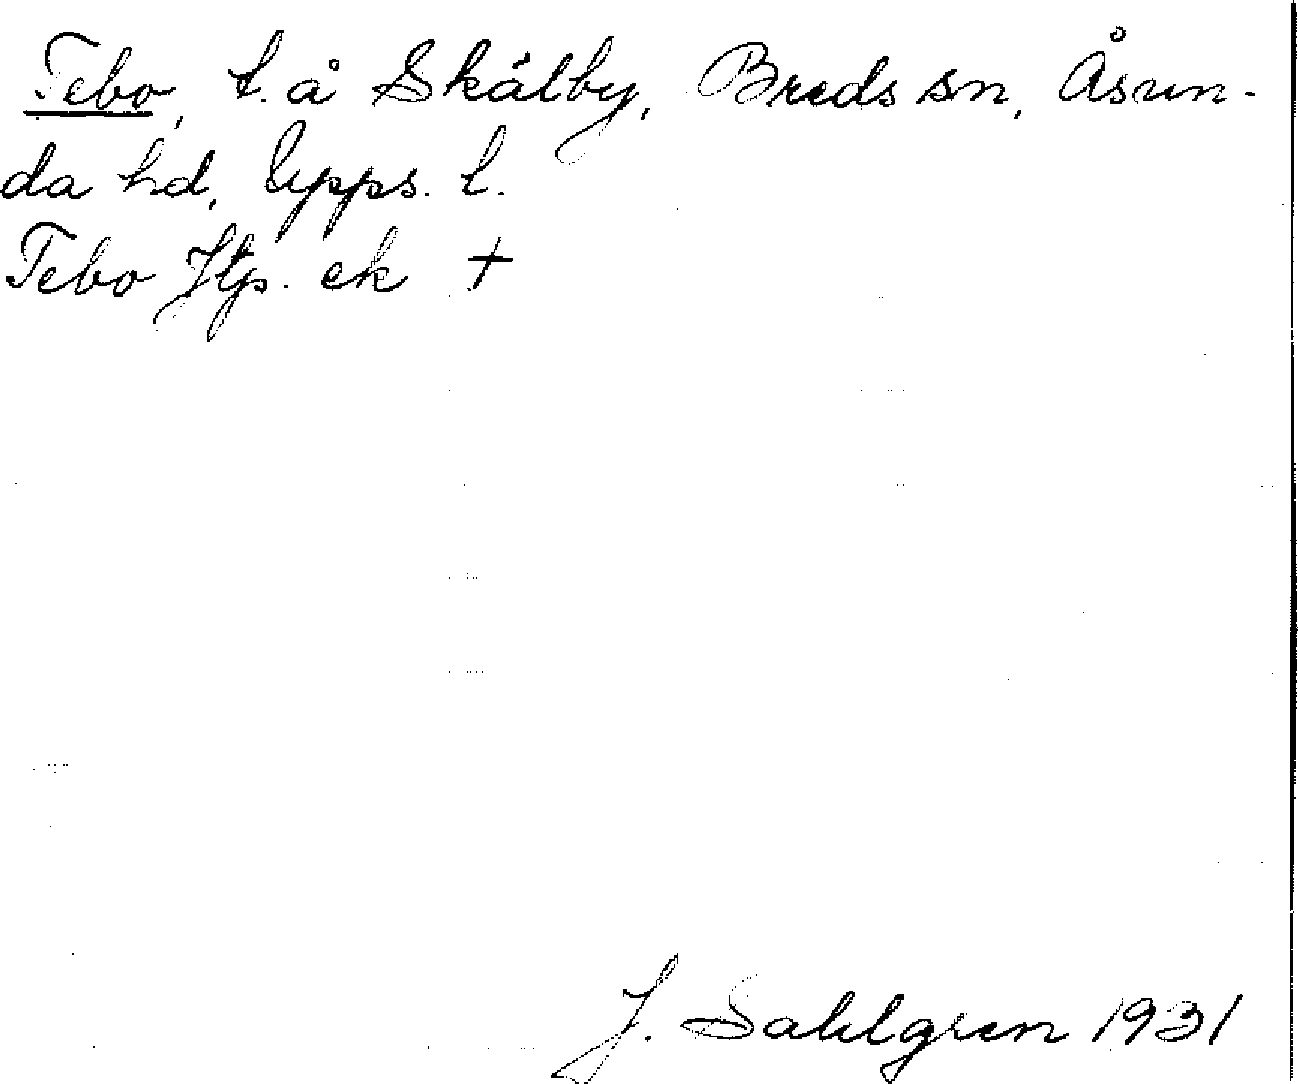 Tebo, t. å Skälby, Breds sn, Åsun-
da hd, Upps. l.
Tebo Jtp. ek +
J. Sahlgren 1931